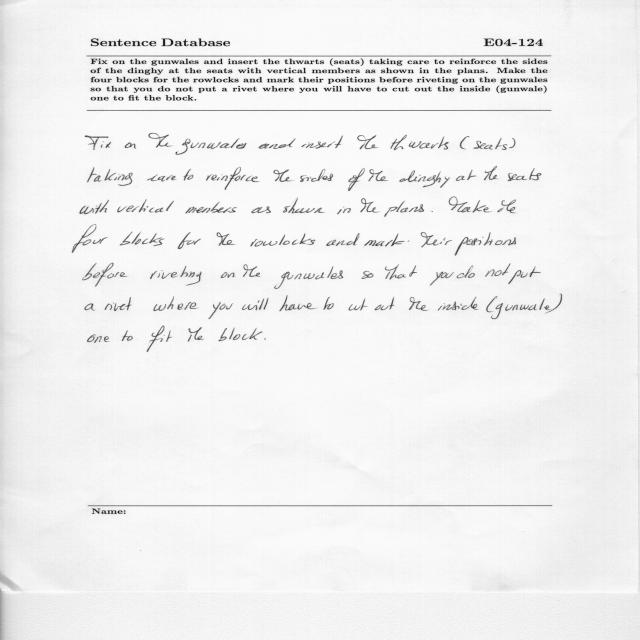 Sentence Database E04-124
Fix on the gunwales and insert the thwarts (seats) taking care to reinforce the sides
of the dinghy at the seats with vertical members as shown in the plans. Make the
four blocks for the rowlocks and mark their positions before riveting on the gunwales
so that you do not put a rivet where you will have to cut out the inside (gunwale)
one to fit the block.
Fix on the gunwales and insert the thwarts (seats)
taking care to reinforce the sides of the dinghy at the seats
with vertical members as shown in the plans. Make the
four blocks for the rowlocks and mark their positions
before riveting on the gunwales so that you do not put
a rivet where you will have to cut out the inside (gunwale)
one to fit the block.
Name: